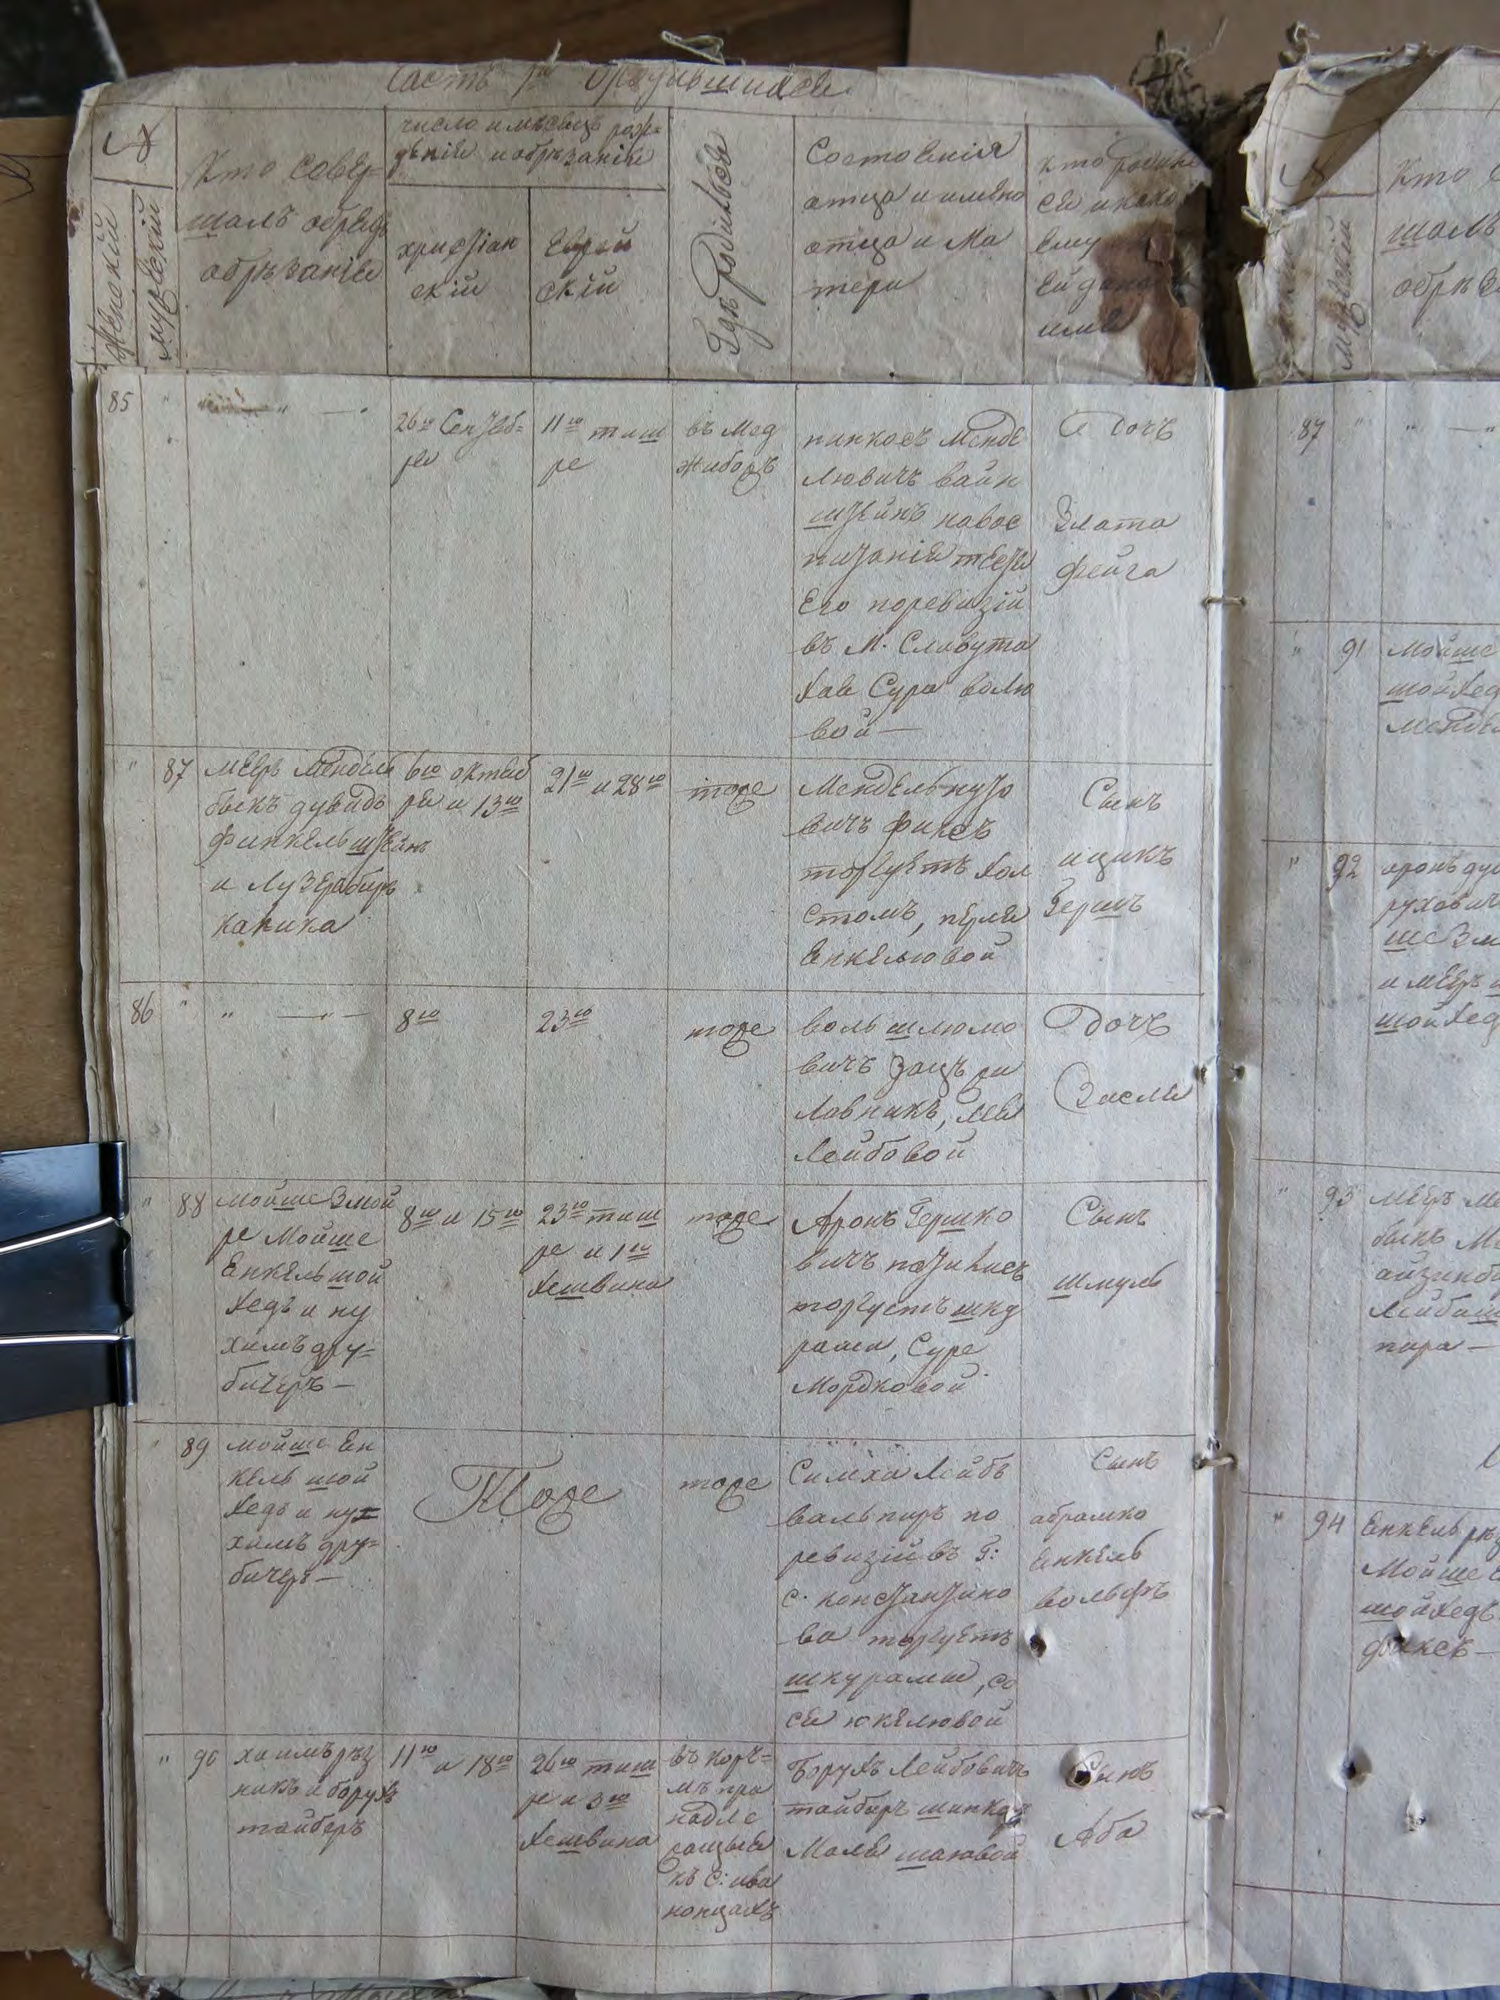 Часть 1я о родившихся
№
Женскій
мужескій
Кто совер-
шалъ обрядъ
обрѣзанія
число и мѣсяцъ рож-
денія и обрѣзанія
христіан
скій
Еврей
скій
Гдѣ родился
Состоянія
отца и имена
отца и Ма
тери
кто родил
ся и како
ему
ей дано
имя
85 " " — "
26го Сентяб-
ря
11го тиш
ре
въ Мед
жибоже
пинкосъ Менде
львичъ вайн
штейнъ
его поревизіи
въ М. Славута
Хае Сура волю
вой —
дочъ
Злата
Фейга
" 87
Меръ Мендель
быкъ дувидъ
финкельштейнъ
и Лузеръ бир
каника
6го октяб
ря и 13го
21го и 28го
тоже
Мендель нуто
вичъ фиксъ
торгуетъ хол
стомъ, перля
Енкелювой
Сынъ
ицикъ
Гершъ
86 " " — " —
8го
23го
тоже
воль шлюмо
вичъ зацъ ри
мовникъ, лея
Лейбовой
дочъ
Засля
" 88
Мойше Змой
ре Мойше
Енкель шой
хедъ и ну
химъ дру-
бичеръ —
8го и 15го
23го тиш
ре и 1го
Хешвина
тоже
Аронъ Гершко
вичъ
торгуетъ шку
рами, Суре
Мордковой
Сынъ
шмуль
" 89
мойше Ен
кель шой
хедъ и нух
химъ дру-
бичеръ —
Тоже
тоже
Симха Лейбъ
вальпиръ по
ревизіи въ Г:
С. константино
ва торгуетъ
шкурами, со
ся юкелювой
Сынъ
абрамко
Енкель
вольфъ
" 90
хаимъ рѣз
никъ и борухъ
тайберъ
11го и 18го
26го тиш
ре и 3го
Хешвина
въ корч-
мѣ при
надле
жащыя
къ С: ива
нонцахъ
Борухъ Лейбовичъ
тайберъ шинкаръ
Маля шаювой
Сынъ
Аба
Кто
шалъ
обрѣз
мужескій
87 " " — "
" 91
Мойше
шойхед
Мендел
" 92
аронъ ду
руховичъ
ше Зм
и меръ
шойхед
" 93
Меръ Ме
быкъ М
айзинб
Лейбиш
пира —
" 94
Енкель рѣз
Мойше
шойхедъ
фиксъ —